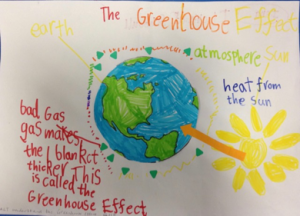 The Greenhouse Effect
earth
atmosphere
Sun
heat from
the sun
bad Gas
gas makes
the blanket
thicker This
is called the
Greenhouse Effect